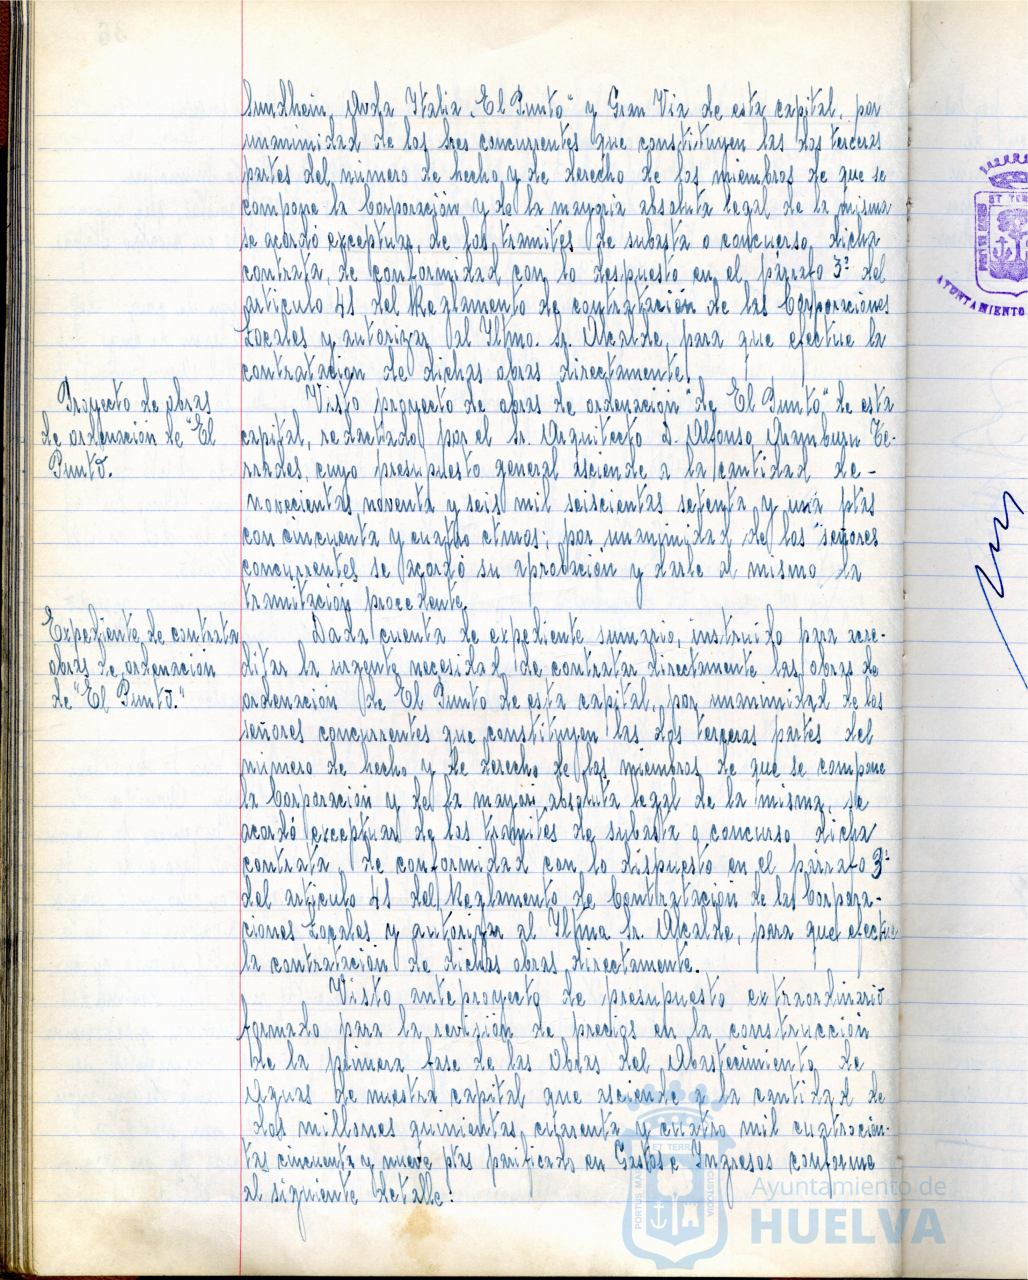 Sundhein, Avda Italia, "El Punto" y Gran Via de esta capital, por
unanimidad de los Sres concurrentes que constituyen las dos terceras
partes del número de hecho y de derecho de los miembros de que se
compone la Corporación y de la mayoria absoluta legal de la misma
se acordó exceptuar, de los tramites de subasta o concurso, dicha
contrata, de conformidad con lo despuesto en el párrafo 3º del
articulo 41 del Reglamento de contratación de las Corporaciones
Locales y autorizar al Iltmo. Sr. Alcalde, para que efectue la
contratación de dichas obras directamente.
Proyecto de obras
de ordenación de "El
Punto".
Visto proyecto de obras de ordenación "de El Punto" de esta
capital, redactado por el Sr. Arquitecto D. Alfonso Aramburu Te-
rrades, cuyo presupuesto general asciende a la cantidad de-
novecientas noventa y seis mil seiscientas setenta y una ptas
con cincuenta y cuatro ctmos; por unanimidad de los señores
concurrentes se acordó su aprobación y darle al mismo la
tramitación procedente.
Expediente de contrata
obras de ordenación
de "El Punto."
Dada cuenta de expediente sumario, instruido para acre-
ditar la urgente necesidad de contratar directamente las obras de
ordenación de El Punto de esta capital, por unanimidad de los
señores concurrentes que constituyen las dos terceras partes del
número de hecho y de derecho de los miembros de que se compone
la Corporación y de la mayori absoluta legal de la misma, se
acordó exceptuar de los tramites de subasta o concurso dicha
contrata de conformidad con lo dispuesto en el párrafo 3º
del articulo 41 del Reglamento de Contratación de las Corpora-
ciones Locales y autorizar al Iltmo Sr. Alcalde, para que efectue
la contratación de dichas obras directamente.
Visto anteproyecto de presupuesto extraordinario
formado para la revisión de precios en la construcción
de la primera fase de las Obras del Abastecimiento de
Aguas de nuestra capital que asciende a la cantidad de
dos millones quinientas cuarenta y cuatro mil cuatrocien-
tas cincuenta y nueve ptas panificado en Gastos e Ingresos conforme
al siguiente detalle:
AYUNTAMIENTO
Ayuntamiento de
HUELVA